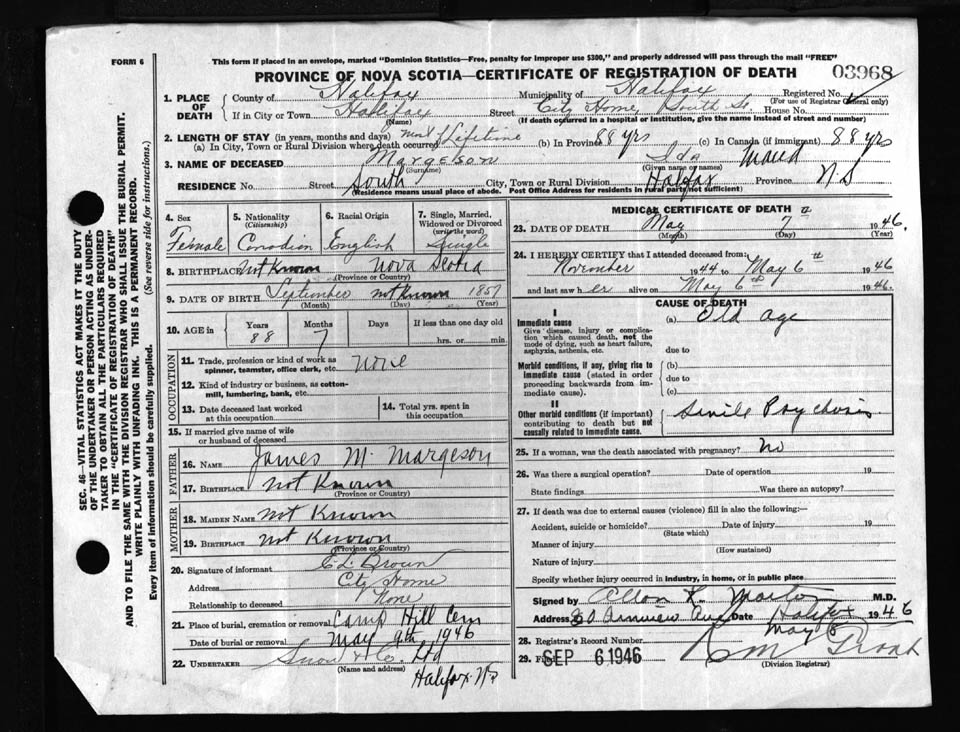 FORM 6
This form if placed in an envelope, marked "Dominion Statistics—Free, penalty for improper use $300," and properly addressed will pass through the mail "FREE"
PROVINCE OF NOVA SCOTIA—CERTIFICATE OF REGISTRATION OF DEATH 03968
1. PLACE OF DEATH
County of Halifax Municipality of Halifax Registered No.
(For use of Registrar General only)
If in City or Town Halifax Street City Home, South St. House No.
(Name) (If death occurred in a hospital or institution, give the name instead of street and number)
2. LENGTH OF STAY (in years, months and days)
(a) In City, Town or Rural Division where death occurred Lifetime (b) In Province 88 yrs (c) In Canada (if immigrant) 88 yrs
3. NAME OF DECEASED Margeson Ida Maud
(Surname) (Given name or names)
RESIDENCE No. Street South City, Town or Rural Division Halifax Province N.S
(Residence means usual place of abode. Post Office Address for residents in rural parts not sufficient)
4. Sex
Female
5. Nationality
(Citizenship)
Canadian
6. Racial Origin
English
7. Single, Married, Widowed or Divorced
(write the word)
Single
8. BIRTHPLACE Not Known Nova Scotia
(Province or Country)
9. DATE OF BIRTH September not known 1857
(Month) (Day) (Year)
10. AGE in Years Months Days If less than one day old
88 7 hrs. or min.
OCCUPATION
11. Trade, profession or kind of work as
spinner, teamster, office clerk, etc. None
12. Kind of industry or business, as cotton-
mill, lumbering, bank, etc.
13. Date deceased last worked
at this occupation
14. Total yrs. spent in
this occupation
15. If married give name of wife
or husband of deceased
FATHER
16. NAME James M. Margeson
17. BIRTHPLACE Not Known
(Province or Country)
MOTHER
18. MAIDEN NAME Not Known
19. BIRTHPLACE Not Known
(Province or Country)
20. Signature of informant Brown
Address City Home
Relationship to deceased None
21. Place of burial, cremation or removal Camp Hill Cem
Date of burial or removal May 9th 1946
22. UNDERTAKER Snow & Co. Ltd
(Name and address)
Halifax. NS
MEDICAL CERTIFICATE OF DEATH
23. DATE OF DEATH May 7th 1946.
(Month) (Day) (Year)
24. I HEREBY CERTIFY that I attended deceased from:
November 1944 to May 6th 1946
and last saw h er alive on May 6th 1946.
CAUSE OF DEATH
I
Immediate cause
Give disease, injury or complication which caused death, not the mode of dying, such as heart failure, asphyxia, asthenia, etc.
(a) Old age
due to
Morbid conditions, if any, giving rise to immediate cause (stated in order proceeding backwards from immediate cause).
(b)
due to
(c)
II
Other morbid conditions (if important) contributing to death but not causally related to immediate cause.
Senile Psychosis
25. If a woman, was the death associated with pregnancy? No
26. Was there a surgical operation? Date of operation 19
State findings Was there an autopsy?
27. If death was due to external causes (violence) fill in also the following:—
Accident, suicide or homicide? Date of injury 19
(State which)
Manner of injury
(How sustained)
Nature of injury
Specify whether injury occurred in industry, in home, or in public place
Signed by M.D.
Address Date Halifax 1946
May 8
28. Registrar's Record Number
29. Filed SEP 6 1946
(Division Registrar)
SEC. 46—VITAL STATISTICS ACT MAKES IT THE DUTY
OF THE UNDERTAKER OR PERSON ACTING AS UNDER-
TAKER TO OBTAIN ALL THE PARTICULARS REQUIRED
IN THE "CERTIFICATE OF REGISTRATION OF DEATH"
AND TO FILE THE SAME WITH THE DIVISION REGISTRAR WHO SHALL ISSUE THE BURIAL PERMIT.
WRITE PLAINLY WITH UNFADING INK. THIS IS A PERMANENT RECORD.
Every item of information should be carefully supplied. (See reverse side for instructions.)